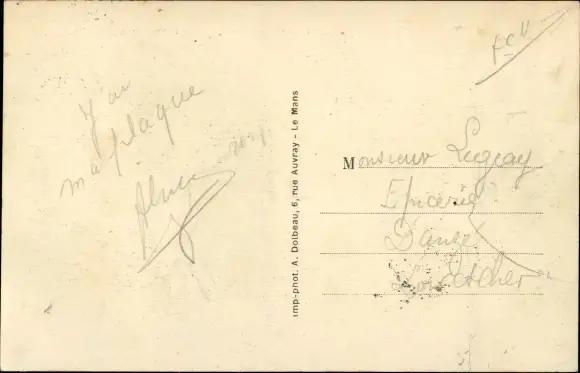 J'ai
ma plaque
Imp-phot. A. Dolbeau, 6, rue Auvray - Le Mans
Monsieur Legeay
Epicerie
Danzé
Loir et Cher